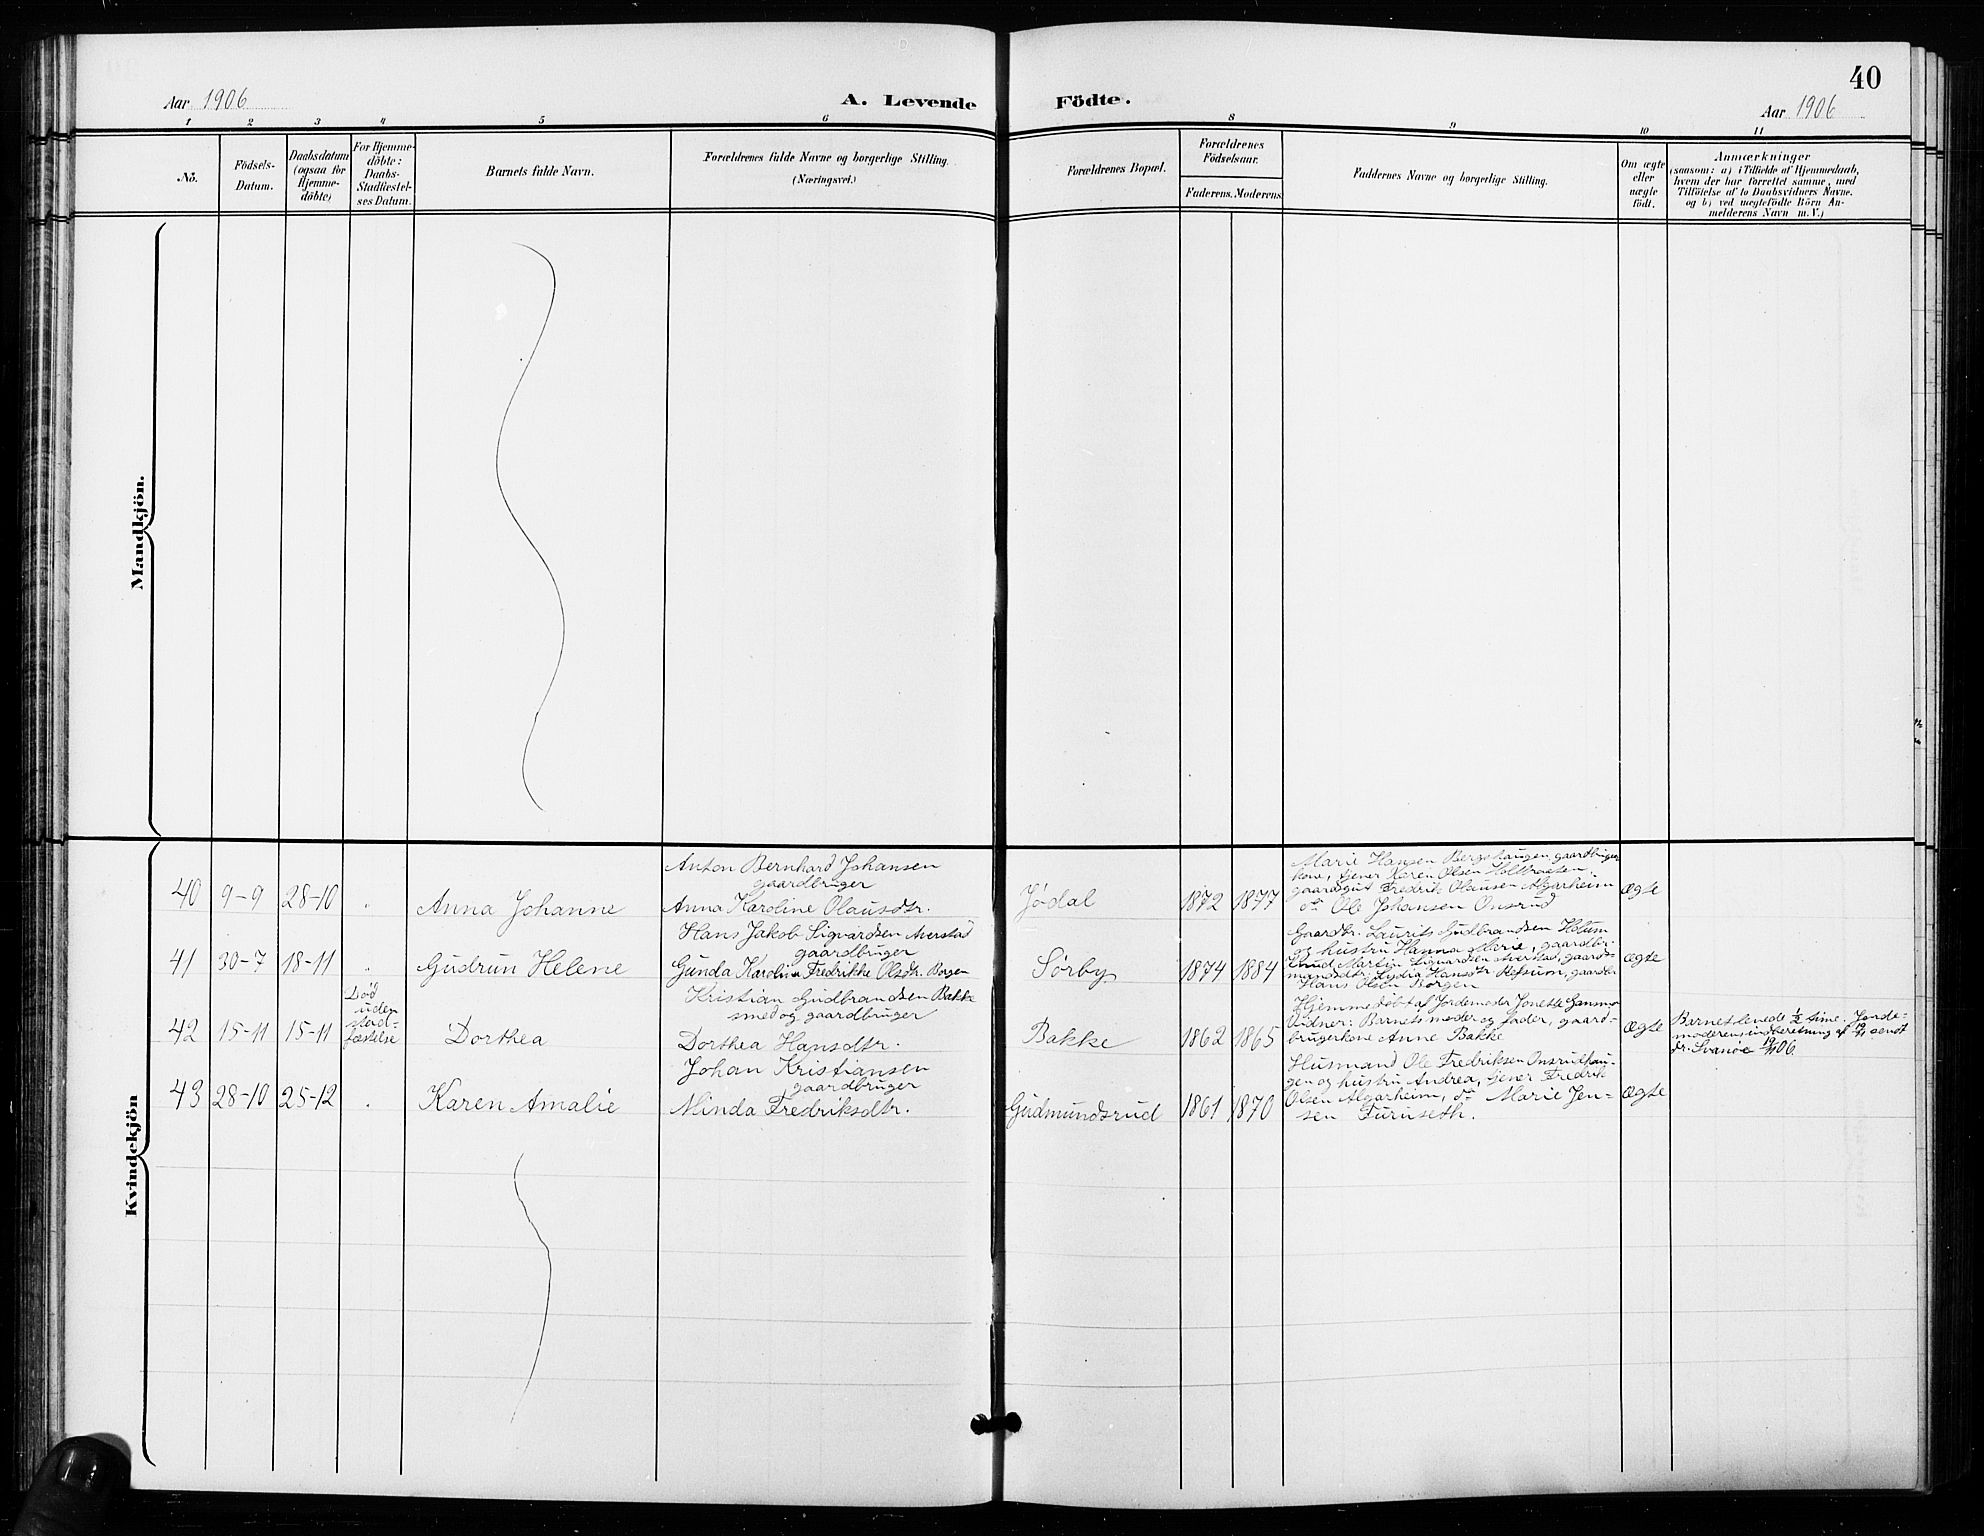 40
Aar 1906
A. Levende Födte.
Aar 1906
1 2 3 4 5 6 8 9 10 11
No.
Födsels-
Datum.
Daabsdatum
(ogsaa for
Hjemme-
döbte)
For Hjemme-
döbte:
Daabs-
Stadfæstel-
ses Datum.
Barnets fulde Navn.
Forældrenes fulde Navne og borgerlige Stilling.
(Næringsvei.)
Forældrenes Bopæl.
Forældrenes
Födselsaar.
Faderens. Moderens.
Faddernes Navne og borgerlige Stilling.
Om ægte
eller
uægte
födt.
Anmærkninger
(saasom: a) i Tilfælde af Hjemmedaab,
hvem der har forrettet samme, med
Tilföielse af to Daabsvidners Navne,
og b) ved uægtefödte Börn An-
melderens Navn m. V.)
Mandkjön.
Kvindekjön
40 9-9 28-10 "
Anna Johanne
Anton Bernhard Johansen
gaardbruger
Anna Karoline Olausdtr.
Jødal
1872 1877
Marie Hansen Bergshaugen, gaardbruger
kone, tjener Karen Olsen Holtbraaten,
gaardgut Fredrik Olausen Algarheim
do Ole Johansen Onsrud
Ægte
41 30-7 18-11 "
Gudrun Helene
Hans Jakob Sigvardsen Averstad
gaardbruger
Gunda Karolina Fredrikke Olsdtr. Borgen
Sørby
1874 1884
Gaardbr. Laurits Gudbrandsen Holum
og hustru Hanna Marie, gaardbr.
Martin Sigvardsen Averstad, gaard-
mandsdtr. Lydia Hansdtr. Refsum, gaardbr.
Hans Olsen Borgen
Ægte
42 15-11 15-11
Død
uden
stad-
fæstelse
Dorthea
Kristian Gudbrandsen Bakke
smed og gaardbruger
Dorthea Hansdtr.
Bakke
1862 1865
Hjemmedøbt af Jordemoder Jonette Gansmo
Vidner: Barnets moder og fader, gaard-
brugerkone Anne Bakke
Ægte
Barnet levede 1/2 time. Jorde-
moderens indberetning af 19/11 sendt
dr. Svanøe 19/11 06.
43 28-10 25-12 "
Karen Amalie
Johan Kristiansen
gaardbruger
Minda Fredriksdtr.
Gudmundsrud
1861 1870
Husmand Ole Fredriksen Onsrudhau-
gen og hustru Andrea, tjener Fredrik
Olsen Algarheim, do Marie Jen-
sen Furuseth.
Ægte